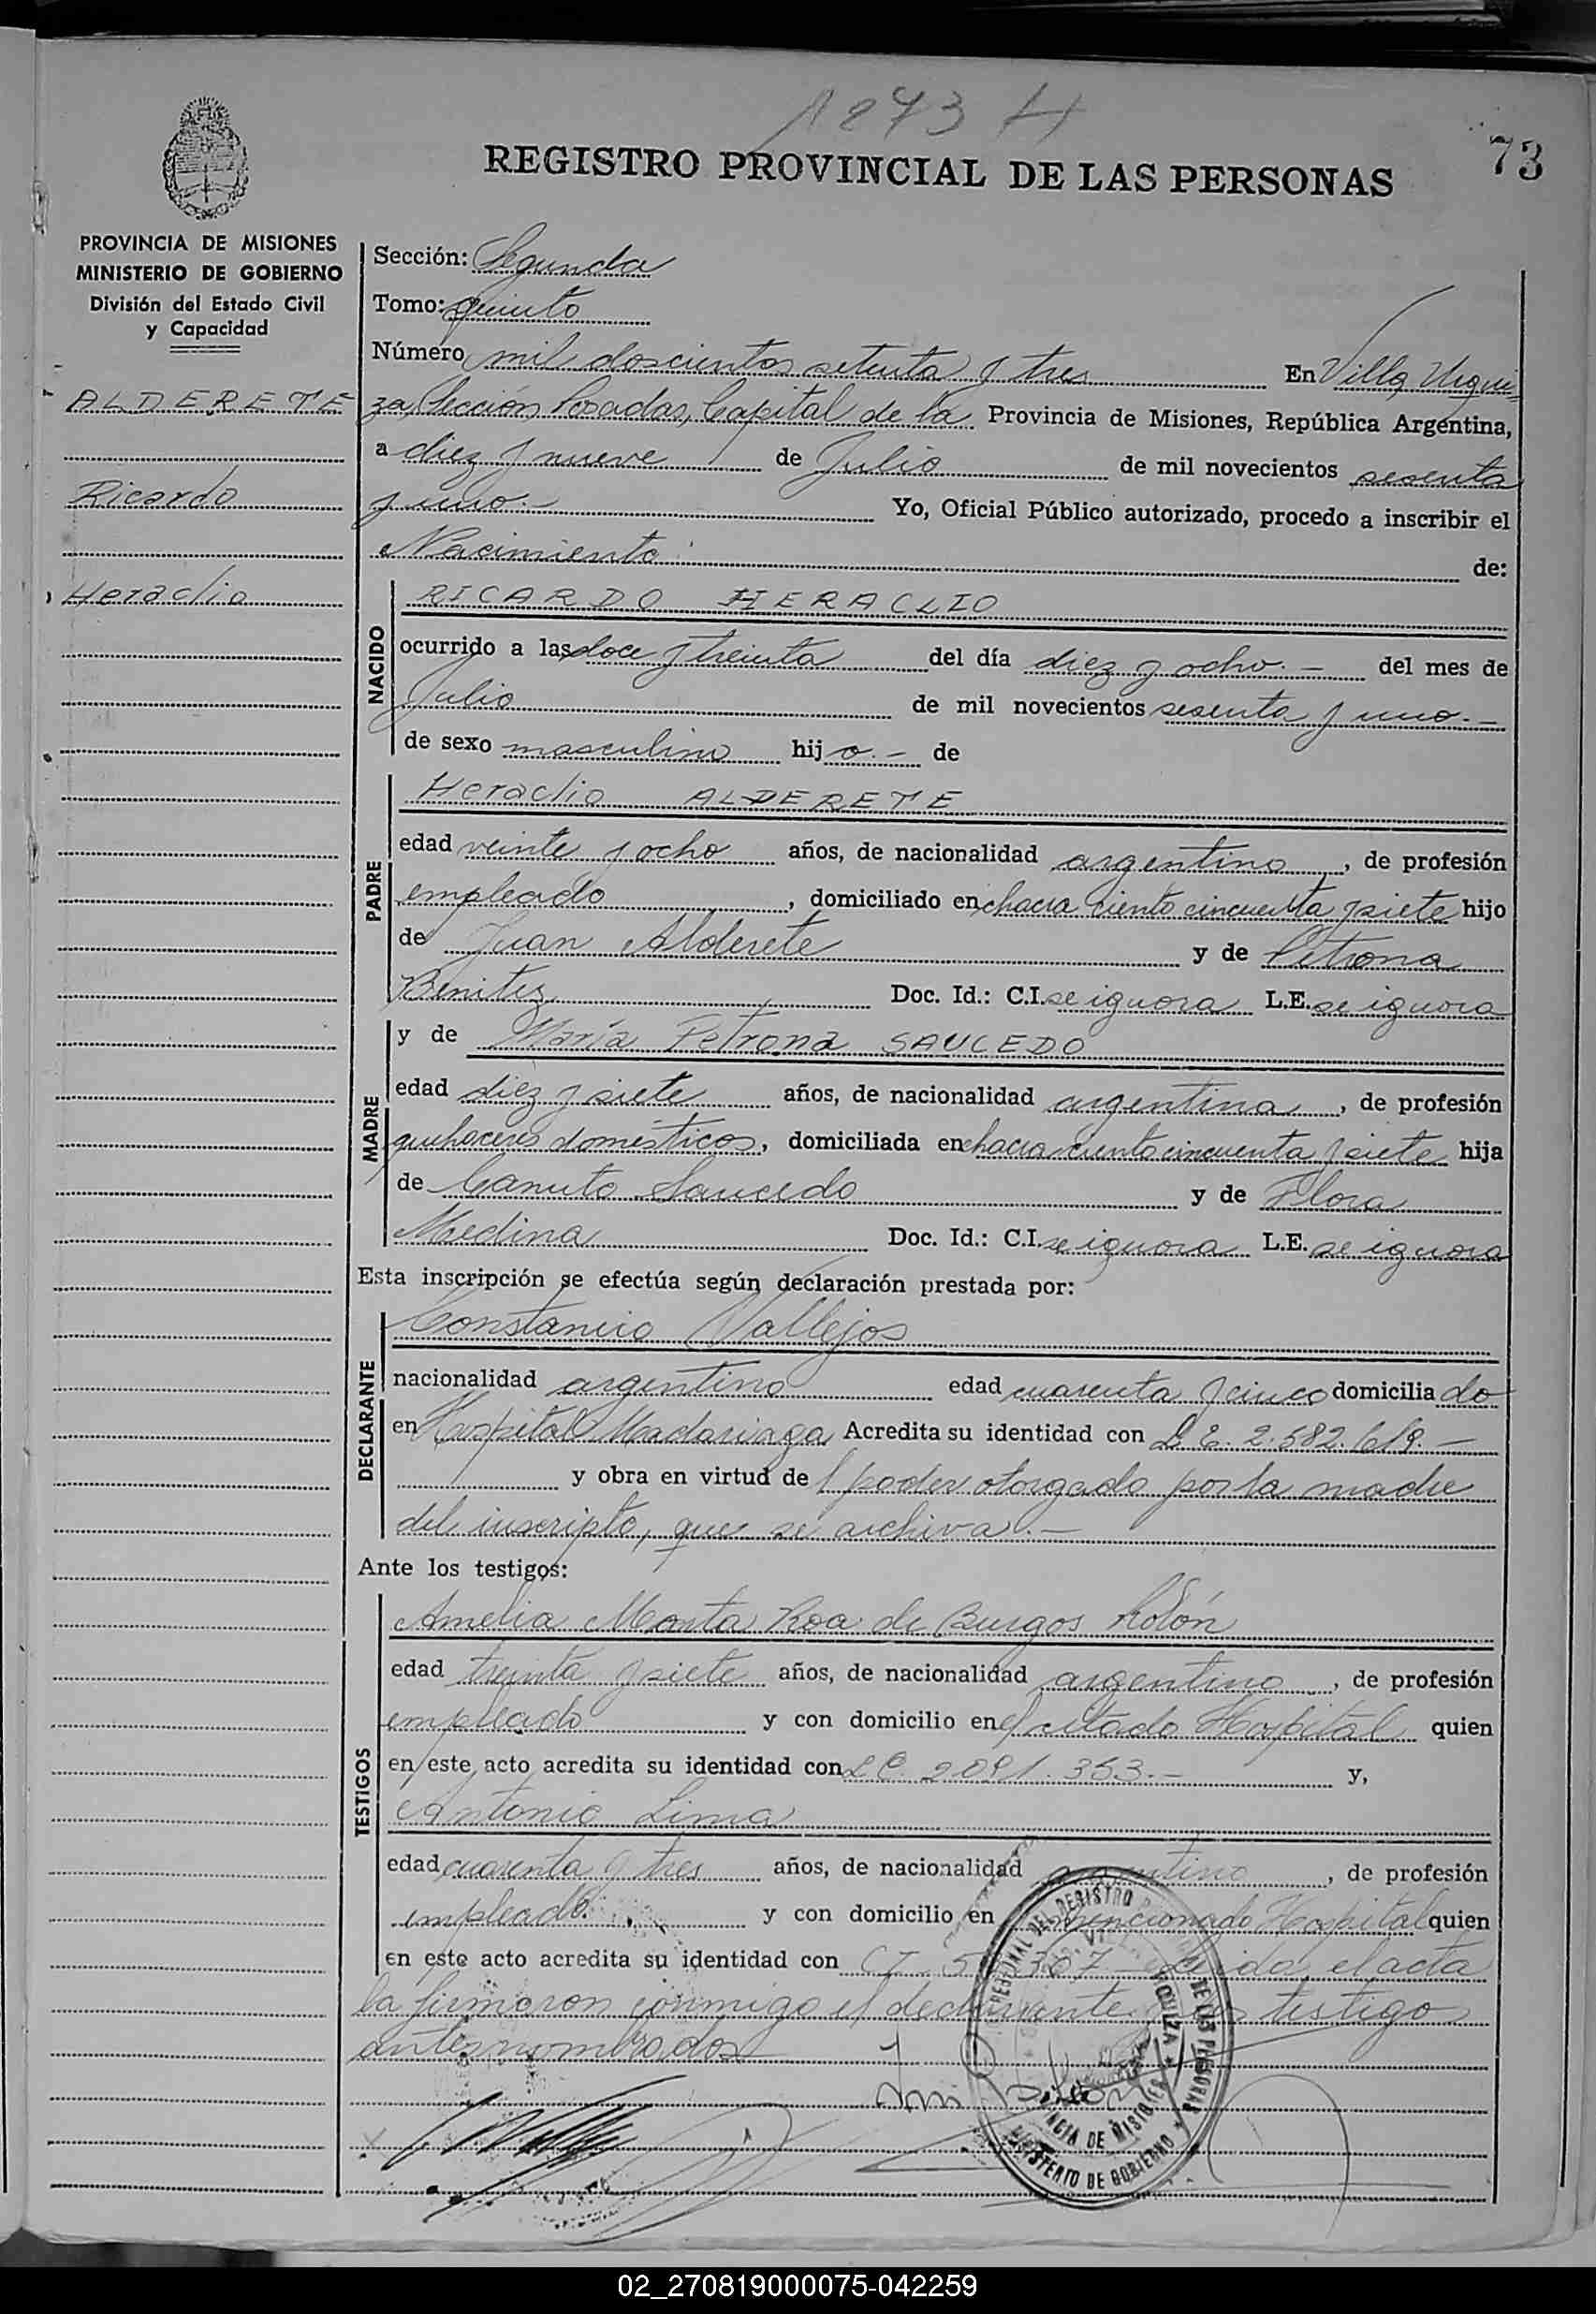 1273 H
REGISTRO PROVINCIAL DE LAS PERSONAS
73
PROVINCIA DE MISIONES
MINISTERIO DE GOBIERNO
División del Estado Civil
y Capacidad
ALDERETE
Ricardo
Heraclio
Sección: Segunda
Tomo: quinto
Número mil doscientos setenta y tres En Villa Urqui-
za, Sección Posadas, Capital de la Provincia de Misiones, República Argentina,
a diez y nueve de Julio de mil novecientos sesenta
y uno.- Yo, Oficial Público autorizado, procedo a inscribir el
Nacimiento de:
NACIDO
RICARDO HERACLIO
ocurrido a las doce y treinta del día diez y ocho.- del mes de
Julio de mil novecientos sesenta y uno.-
de sexo masculino hijo.- de
PADRE
Heraclio ALDERETE
edad veinte y ocho años, de nacionalidad argentino, de profesión
empleado, domiciliado en chacra ciento cincuenta y siete hijo
de Juan Alderete y de Petrona
Benitez Doc. Id.: C.I. se ignora L.E. se ignora
MADRE
y de María Petrona SAUCEDO
edad diez y siete años, de nacionalidad argentina, de profesión
quehaceres domésticos, domiciliada en chacra ciento cincuenta y siete hija
de Canuto Saucedo y de Flora
Medina Doc. Id.: C.I. se ignora L.E. se ignora
Esta inscripción se efectúa según declaración prestada por:
DECLARANTE
Constancio Vallejos
nacionalidad argentino edad cuarenta y cinco domiciliado
en Hospital Madariaga Acredita su identidad con L.E. 2.582.619.-
y obra en virtud del poder otorgado por la madre
del inscripto, que se archiva.-
Ante los testigos:
TESTIGOS
Amelia Marta Roa de Burgos Rolón
edad treinta y siete años, de nacionalidad argentino, de profesión
empleado y con domicilio en el citado Hospital quien
en este acto acredita su identidad con L C 2091.353.- y,
Antonio Lima
edad cuarenta y tres años, de nacionalidad argentino, de profesión
empleado. y con domicilio en mencionado Hospital quien
en este acto acredita su identidad con CI 5 307 Leida el acta
la firmaron conmigo el declarante y los testigo
antes nombrados
PROVINCIA DE MISIONES
MINISTERIO DE GOBIERNO
02_270819000075-042259